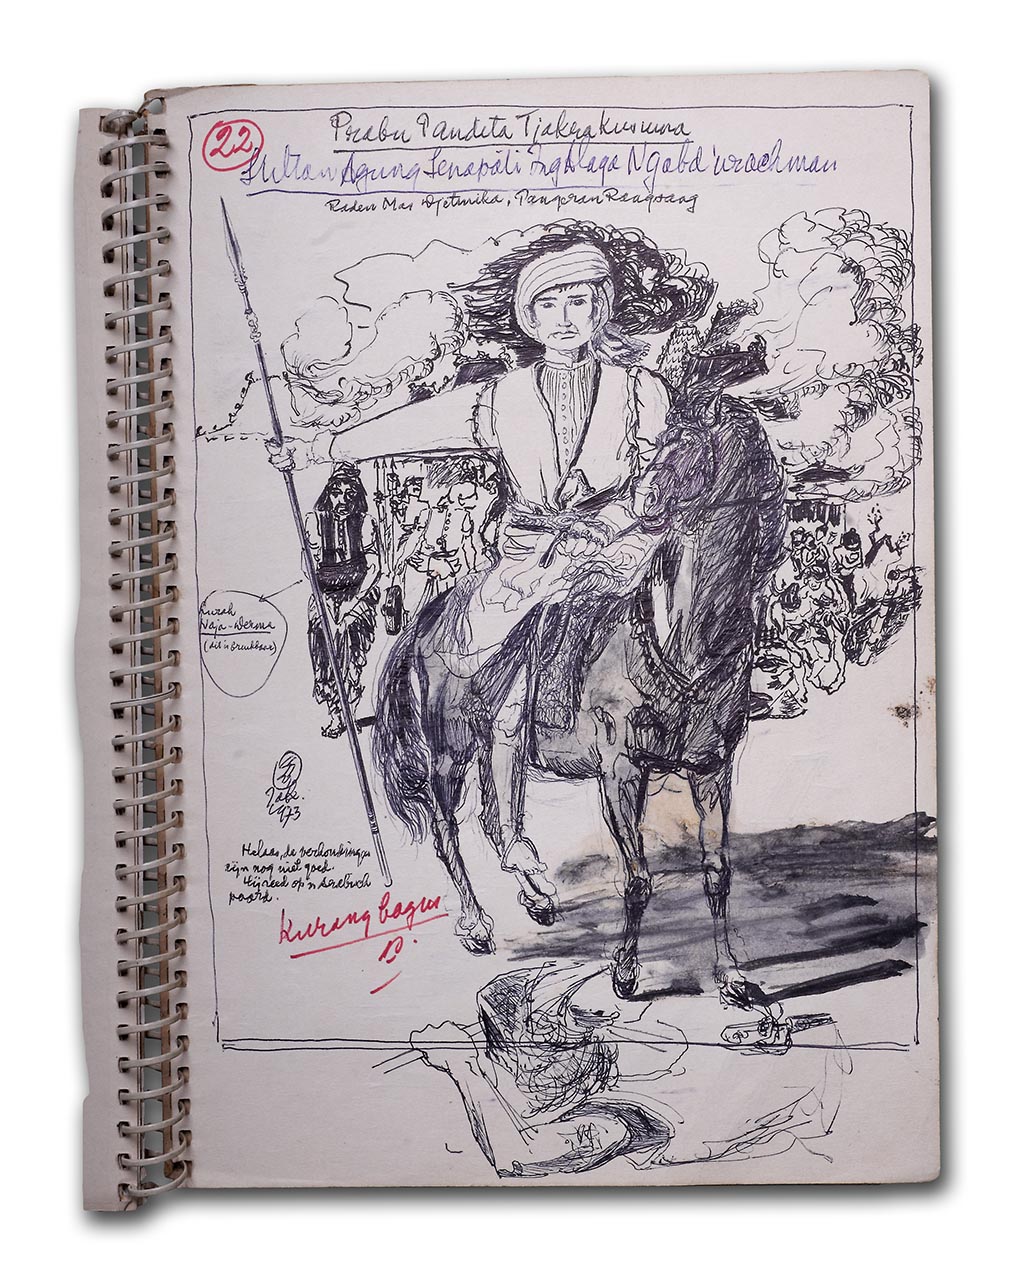 22
Prabu Pandita Tjakrakusuma
Sultan Agung Senapati Ing Alaga Ngabd'urachman
Raden Mas Djetmika, Pangeran Rangsang
Lurah
Naja-Derma
(dit is bruikbaar)
1973
Helaas, de verhoudingen
zijn nog niet goed.
Hij reed op 'n Arabisch
paard.
Kurang bagus